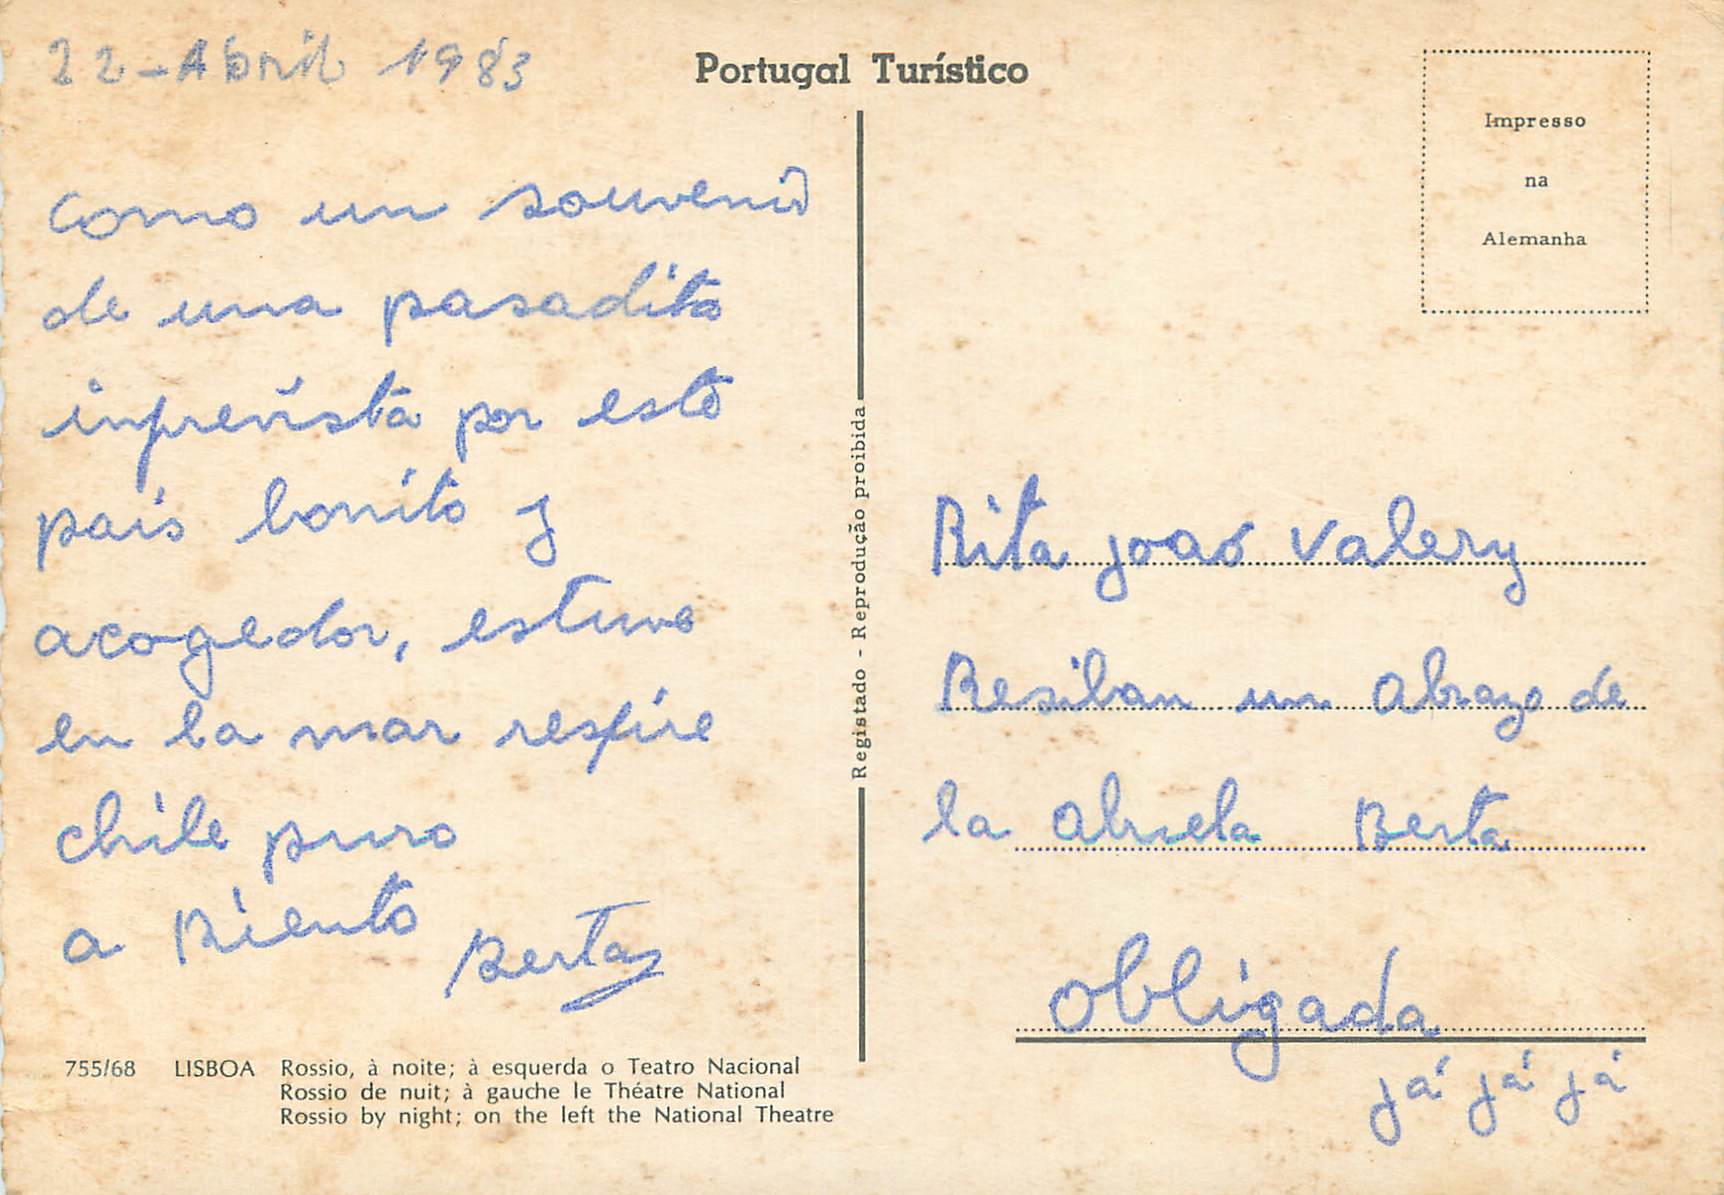 22-Abril 1983
Portugal Turístico
Impresso
na
Alemanha
como un souvenir
de una pasadita
inprevista por esto
pais bonito y
acogedor, estuve
en la mar respire
chile puro
a Riento Berta
Registado - Reprodução proibida
Rita joaó Valery
Resiban un abrazo de
la abuela Berta
obligada
já já já
755/68 LISBOA Rossio, à noite; à esquerda o Teatro Nacional
Rossio de nuit; à gauche le Théatre National
Rossio by night; on the left the National Theatre